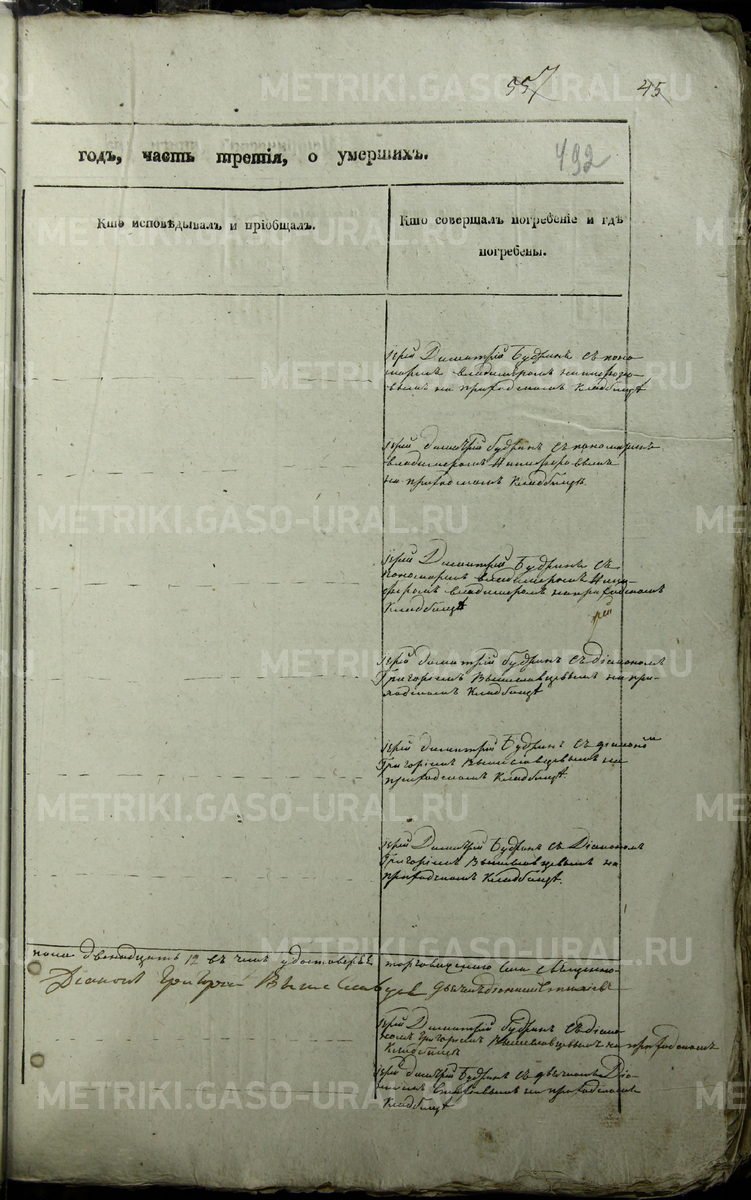 557 45
492
годъ, часть третія, о умершихъ.
Кто исповѣдывалъ и пріобщалъ.
Кто совершалъ погребеніе и гдѣ
погребены.
Іерей Димитрій Будринъ съ поно
маремъ Владимиромъ
вымъ на приходскомъ кладбищѣ
Іерей Димитрій Будринъ съ пономаремъ
Владимиромъ
на приходскомъ кладбищѣ.
Іерей Димитрій Будринъ съ
пономаремъ Владимиромъ
Владимиромъ на приходскомъ
кладбищѣ
рей
Іерей Димитрій Будринъ съ діакономъ
Григоріемъ Вышеславцевымъ на при
ходскомъ кладбищѣ
Іерей Димитрій Будринъ съ діакономъ
Григоріемъ Вышеславцевымъ на
приходскомъ кладбищѣ.
Іерей Димитрій Будринъ съ Діакономъ
Григоріемъ Вышеславцевымъ на
приходскомъ кладбищѣ.
пола двенадцать 12 въ чемъ
Діаконъ Григорій Вышеславцевъ
Іерей Димитрій Будринъ съ діако
номъ Григоріемъ Вышеславцевымъ на приходскомъ
кладбищѣ
Іерей Димитрій Будринъ съ
на приходскомъ
кладбищѣ
METRIKI.GASO-URAL.RU